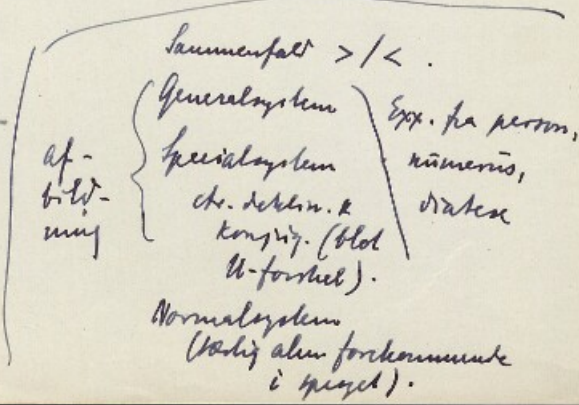 Sammenfald >/< .
Generalsystem
Specialsystem
ctr. deklin. &
konjug. (blot
U-forskel).
af-
bild-
ning
Exx. fra person,
numerus,
diatese
Normalsystem
(særlig alm forekommende
i sproget).